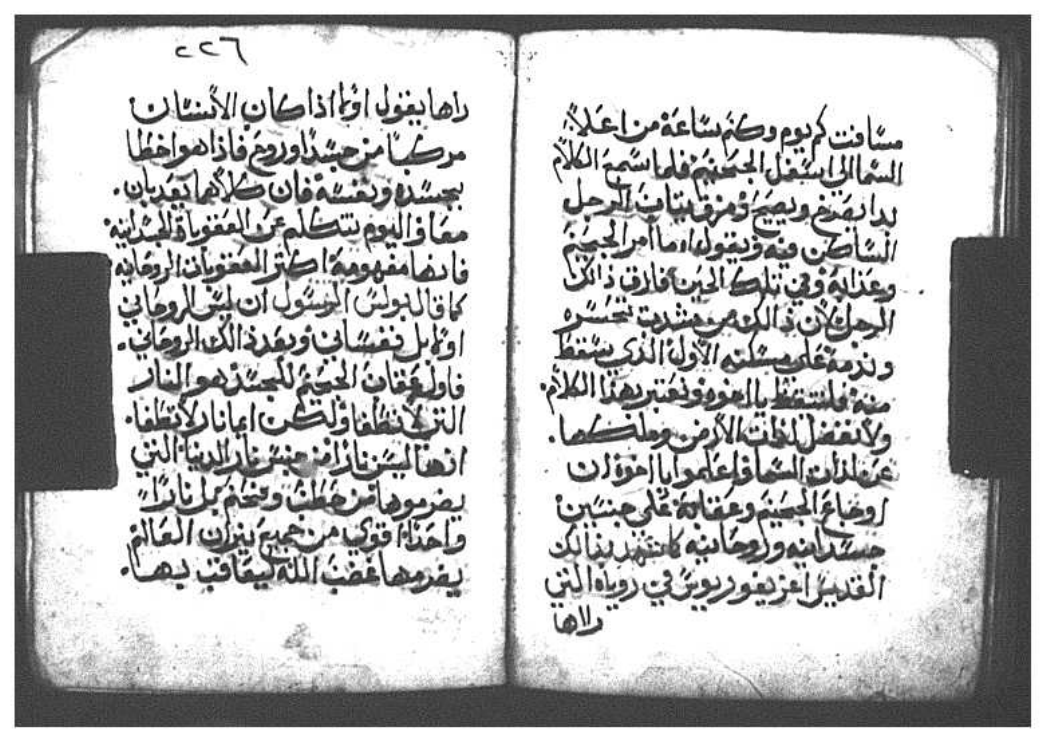 مسافت كم يوم وكم ساعة من اعلا
السما الى اسفل الجحيم فلما سمع الكلام
بدا يصرخ ويصيح ومزق ثياب الرجل
الساكن فيه ويقول اه ما أمر الجحيم
وعذابه وفي تلك الحين فارق ذالك
الرجل لان ذالك من شدت تحسره
وندمه على مسكنه الأول الذي سقط
منه فلنستقظ يا اخوه ونعتبر بهذا الكلام
ولا نفضل لذات الأرض وملكها
عن لذات السما واعلموا يا اخوة ان
اوجاع الجحيم وعقابه على جنسين
جسدانيه وروحانيه كما تشهد بذالك
القديس اغريغوريوس في روياه التي
رااها
٢٢٦
راها يقول اولا اذا كان الأنسان
مركبا من جسدا وروح فاذا هو اخطا
بجسده ونفسه فان كلاهما يعدبان
معا واليوم نتكلم عن العقوباة الجسدانية
فانها مفهومة اكثر العقوبات الروحانيه
كما قال بولس الرسول ان ليس الروحاني
اولا بل نفساني وبعد ذالك الروحاني
فاول عقاب الجحيم للجسد هو النار
التي لا تطفا ولكن ايما نار لا تطفا
انها ليس نارا من جنس نار الدنيا التي
يضرموها من حطب وفحم بل نارا
واحدا اقوي من جميع نيران العالم
يضرمها غضب الله ليعاقب بها